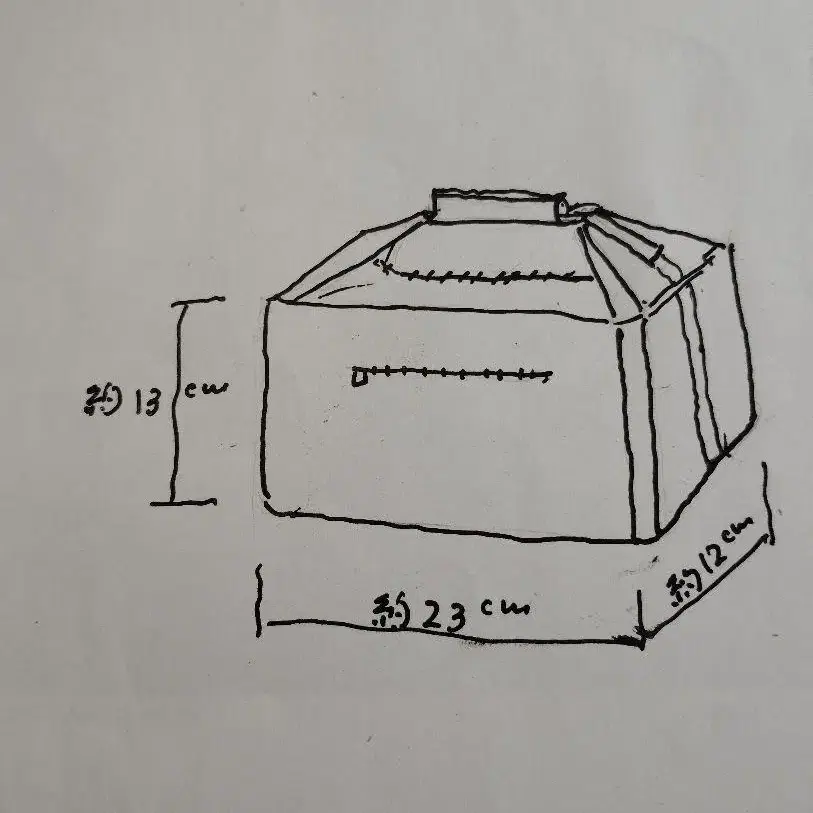 約13cm
約23cm
約12cm